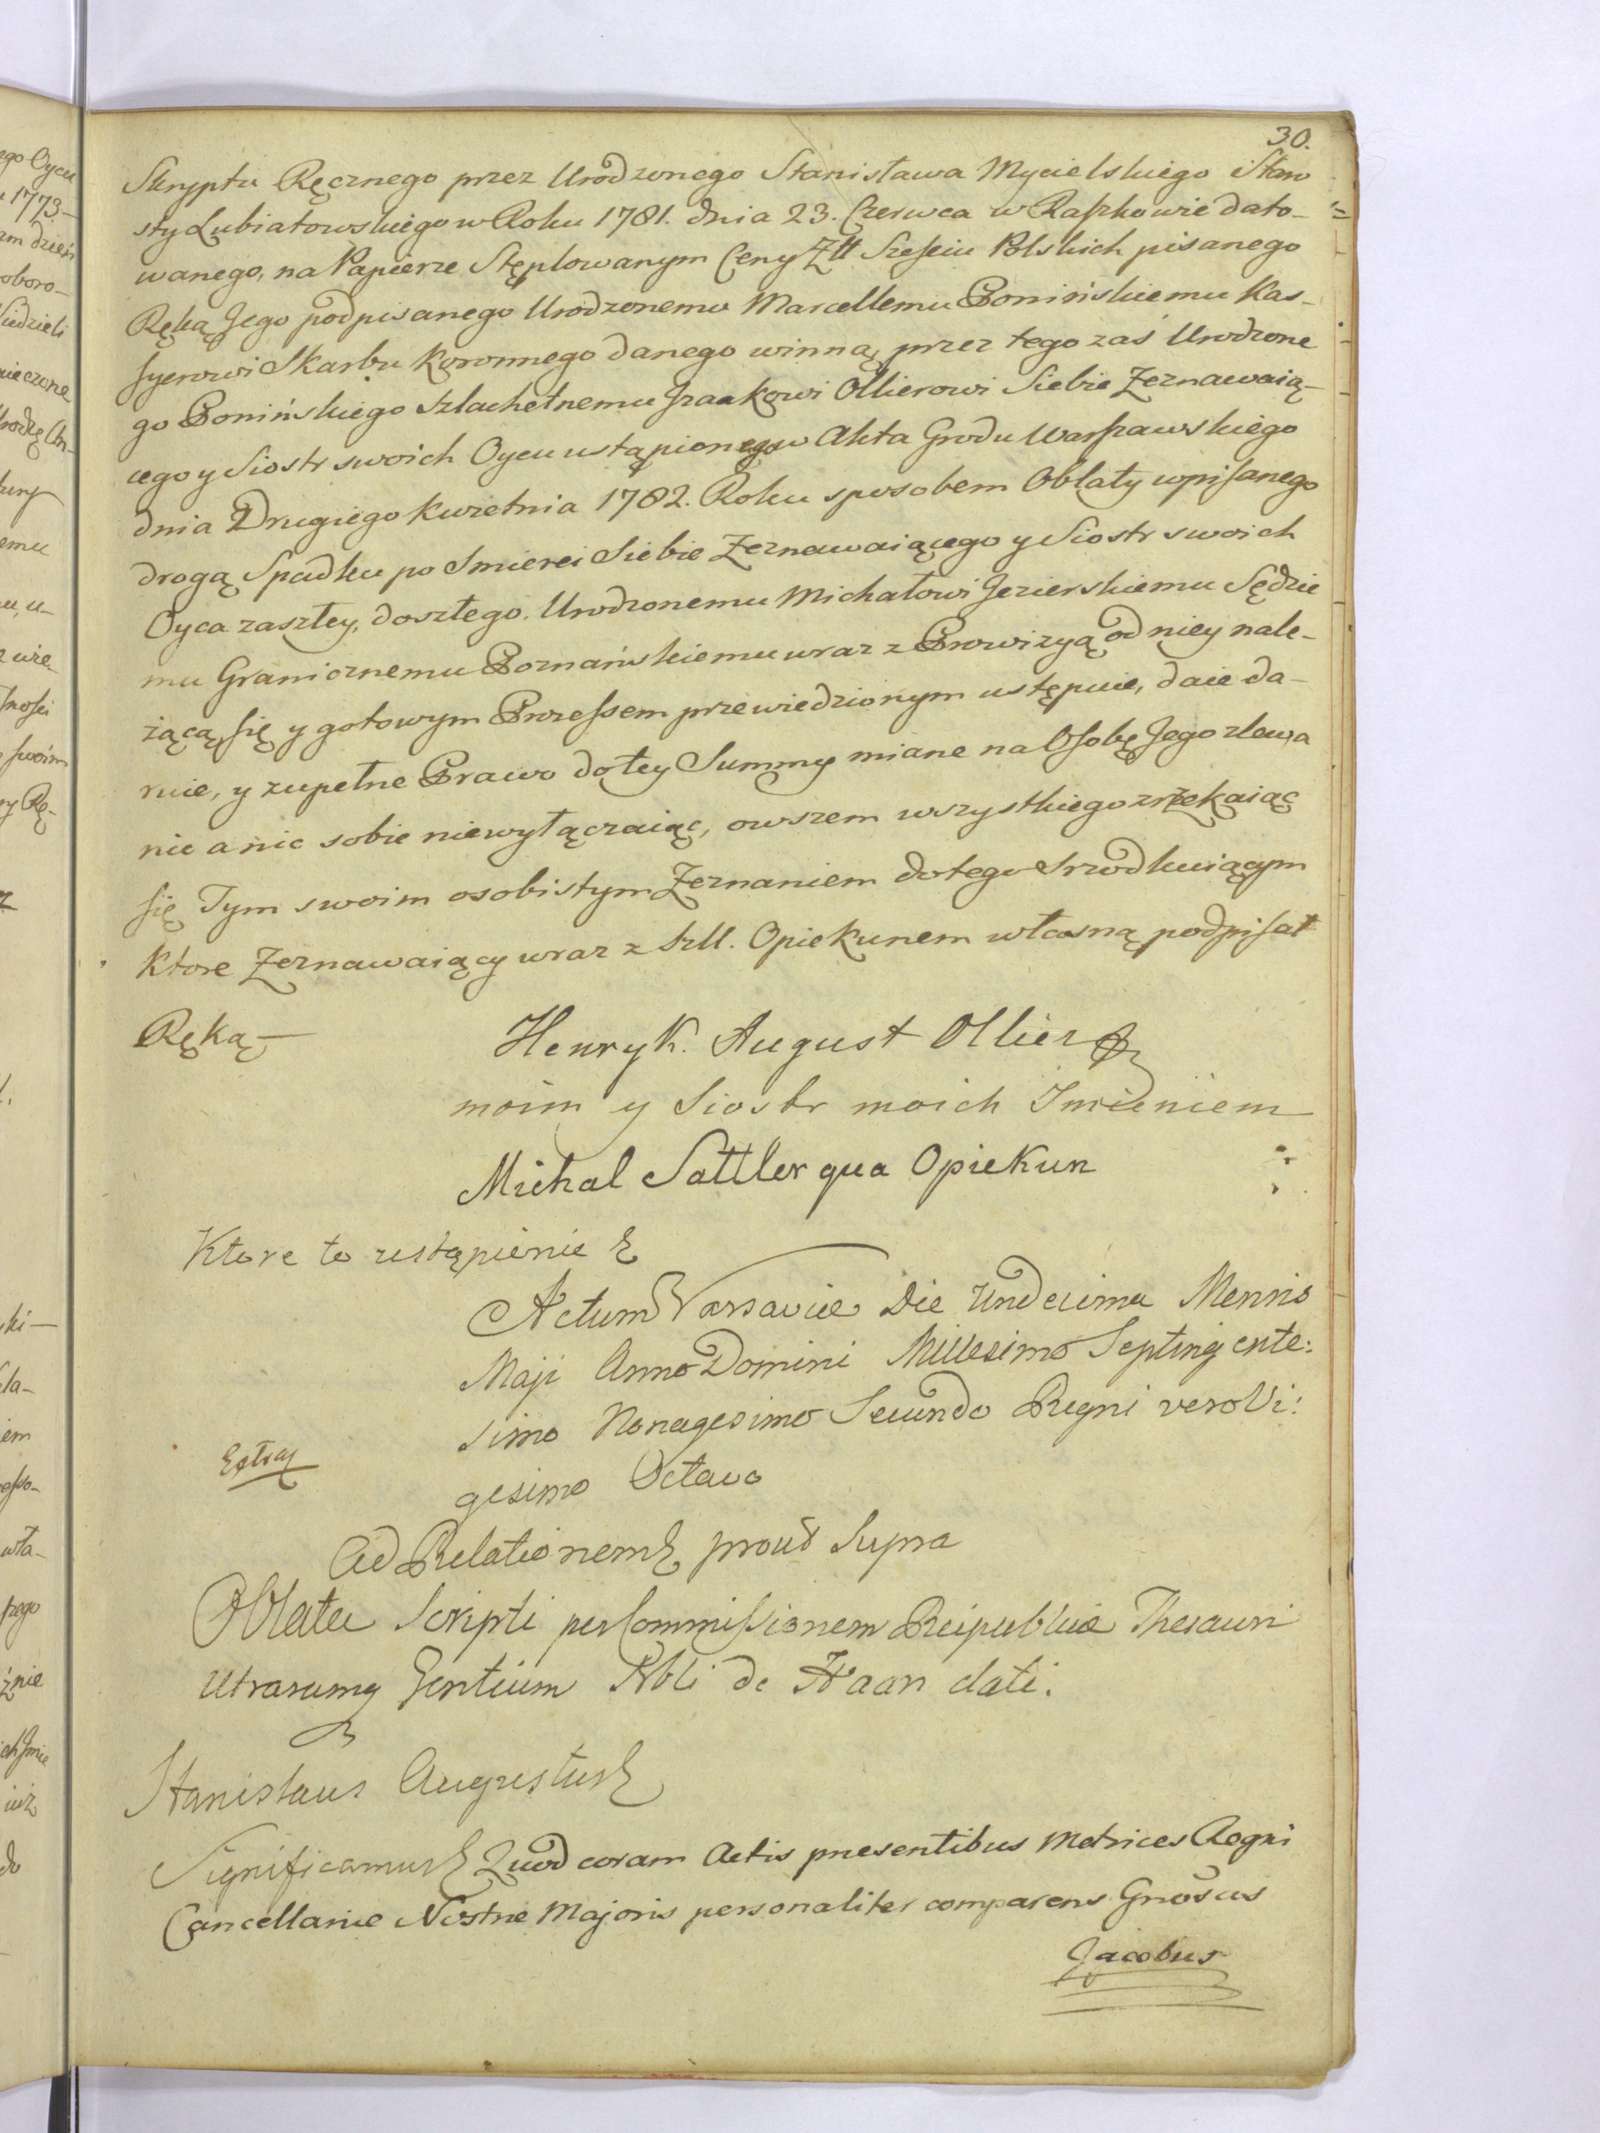 30.
Skryptu Ręcznego przez Urodzonego Stanisława Mycielskiego Staro
sty Lubiatowskiego w Roku 1781. dnia 23. Czerwca w Raszkowie dato-
wanego, na Papierze Stęplowanym Ceny Złł Szesciu Polskich pisanego
Ręką Jego podpisanego Urodzonemu Marcellemu Ponińskiemu Kas-
syerowi Skarbu Koronnego danego winną, przez tego zaś Urodzone
go Ponińskiego Szlachetnemu Izaakowi Ollierowi Siebie Zeznawaią-
cego y Siostr swoich Oycu ustąpionego w Akta Grodu Warszawskiego
dnia Drugiego Kwietnia 1782. Roku sposobem Oblaty wpisanego
drogą Spadku po Smierci Siebie Zeznawaiącego y Siostr swoich
Oyca zaszłey, doszłego. Urodzonemu Michałowi Jezierskiemu Sędzie
mu Granicznemu Poznańskiemu wraz z Prowizyą od niey nale-
żącą się y gotowym Processem przewiedzionym ustępuie, daie da-
ruie, y zupełne Prawo do tey Summy miane na Osobę Jego zlewa
nic a nic sobie niewyłączaiąc, owszem wszystkiego zrzekaiąc
się Tym swoim osobistym Zeznaniem do tego srzodkuiącym
Ktore Zeznawaiący wraz z Szll. Opiekunem własną podpisał
Ręką—
Henryk. August Ollier
moim y Siostr moich Imieniem
Michal Sattler qua Opiekun
Ktore to ustąpienie &
Actum Varsaviae Die Undecima Mensis
Maji Anno Domini Millesimo Septingente:
simo Nonagesimo Secundo Regni vero Vi:
gesimo Octavo
Ad Relationem & prout Supra
Oblata Scripti per Commissionem Reipublicae Thesauri
Utrarumq Gentium Nbli de Haan dati.
Stanislaus Augustus &
Significamus & Quod coram Actis presentibus Metrices Regni
Cancellariae Nostrae Majoris personaliter comparens Gnosus
Jacobus